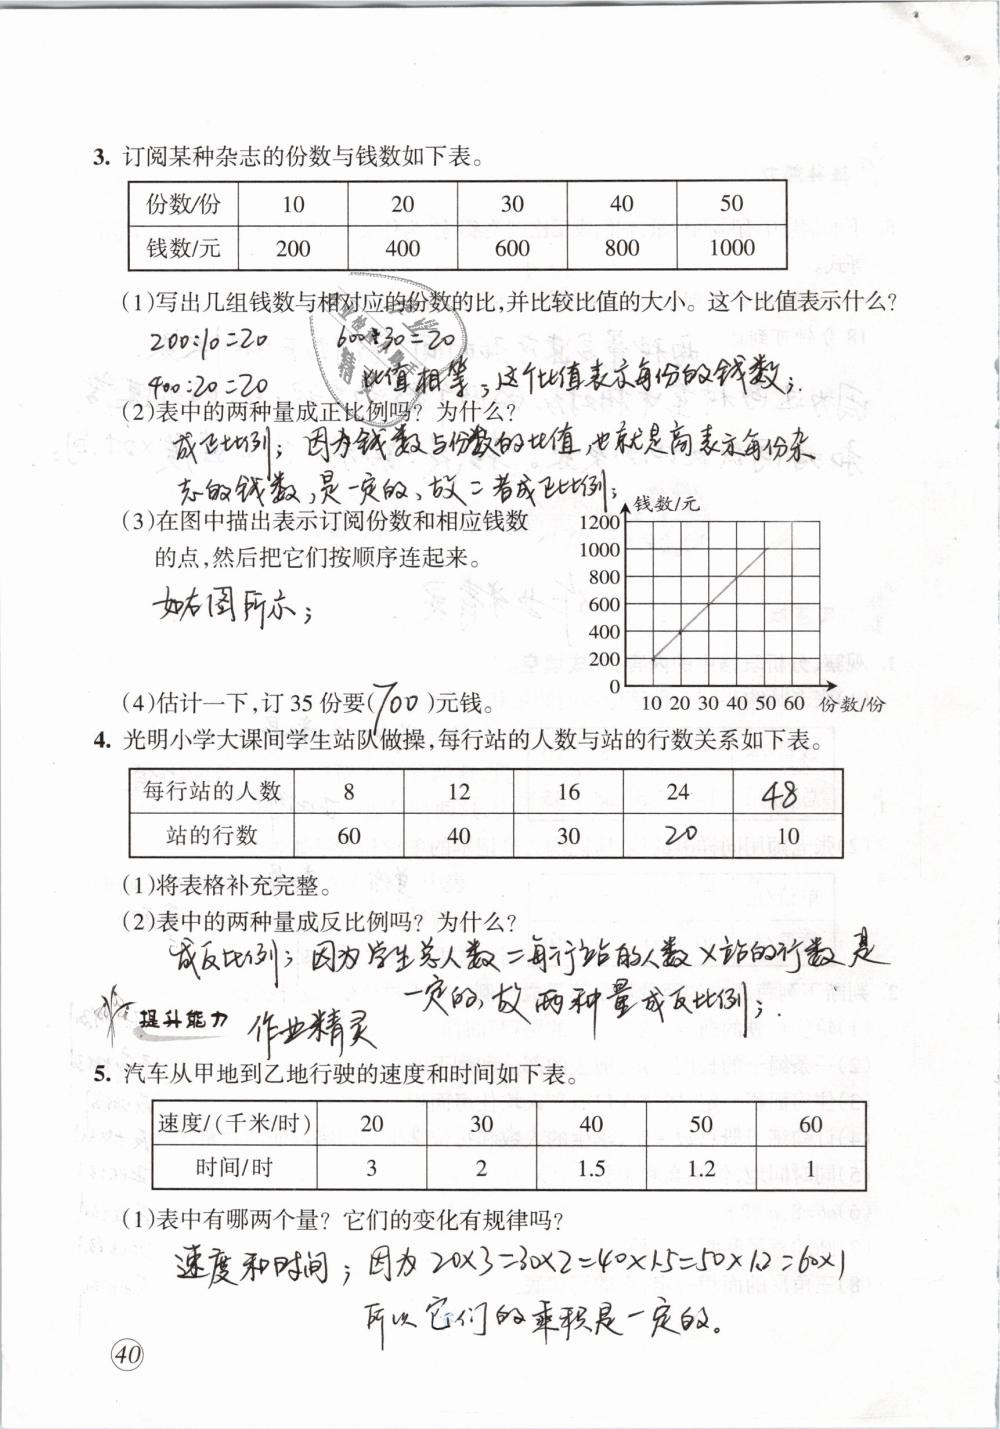 3. 订阅某种杂志的份数与钱数如下表。
份数/份 10 20 30 40 50
钱数/元 200 400 600 800 1000
(1)写出几组钱数与相对应的份数的比,并比较比值的大小。这个比值表示什么?
200:10=20 600:30=20
400:20=20 比值相等;这个比值表示每份的钱数;
(2)表中的两种量成正比例吗? 为什么?
成正比例; 因为钱数与份数的比值,也就是商表示每份杂
志的钱数,是一定的,故二者成正比例;
(3)在图中描出表示订阅份数和相应钱数
的点,然后把它们按顺序连起来。
如右图所示;
钱数/元
1200
1000
800
600
400
200
0
10 20 30 40 50 60 份数/份
(4)估计一下,订 35 份要(700)元钱。
4. 光明小学大课间学生站队做操,每行站的人数与站的行数关系如下表。
每行站的人数 8 12 16 24 48
站的行数 60 40 30 20 10
(1)将表格补充完整。
(2)表中的两种量成反比例吗? 为什么?
成反比例; 因为学生总人数=每行站的人数×站的行数是
一定的,故两种量成反比例;
提升能力 作业精灵
5. 汽车从甲地到乙地行驶的速度和时间如下表。
速度/(千米/时) 20 30 40 50 60
时间/时 3 2 1.5 1.2 1
(1)表中有哪两个量? 它们的变化有规律吗?
速度和时间; 因为 20×3=30×2=40×1.5=50×1.2=60×1
所以它们的乘积是一定的。
40